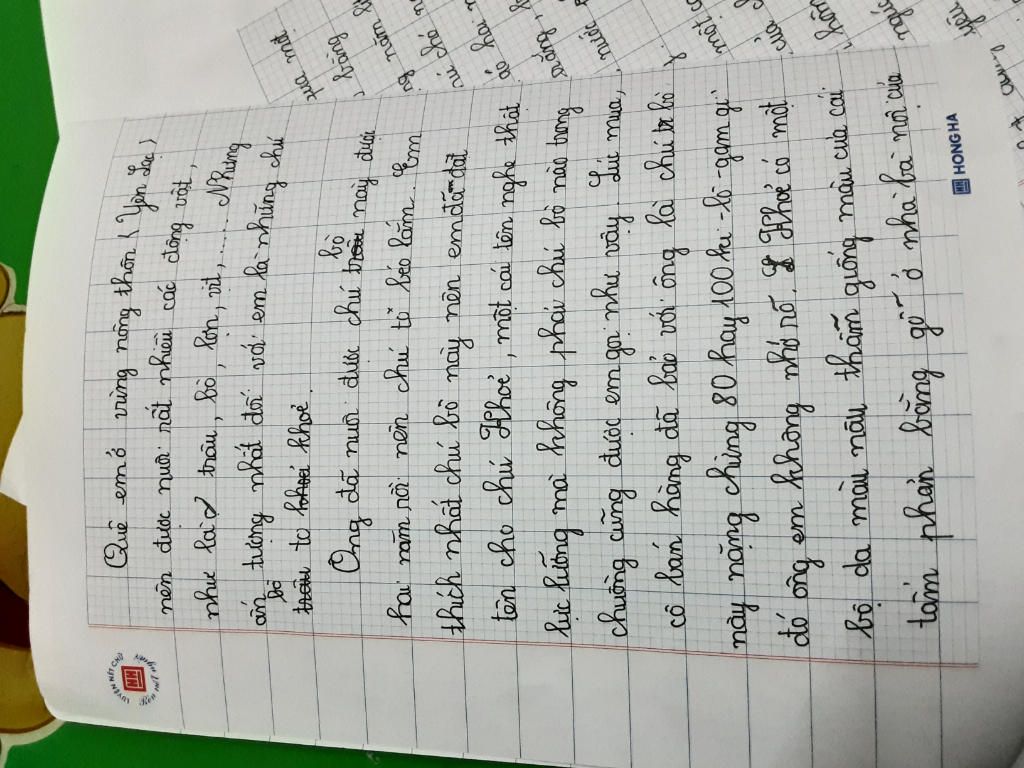 LUYỆN NÉT CHỮ
Rèn nết người
Quê em ở vùng nông thôn (Yên Lạc)
nên được nuôi rất nhiều các động vật,
như lài trâu, bò, lợn, vịt,....... Nhưng
ấn tượng nhất đối với em là những chú
bò to khoẻ.
Ông đã nuôi được chú bò này được
hai năm rồi nên chú to béo lắm. Em
thích nhất chú bò này nên em đã đặt
tên cho chú Khoẻ, một cái tên nghe thật
lực lưỡng mà không phải chú bò nào trong
chuồng cũng được em gọi như vậy. Lúc mua,
cô bán hàng đã bảo với ông là chú bò
này nặng chừng 80 hay 100 ki-lô-gam gì
đó ông em không nhớ rõ. Khoẻ có một
bộ da màu nâu thẫm giống màu của cái
tấm phản bằng gỗ ở nhà bà nội của
HONG HA